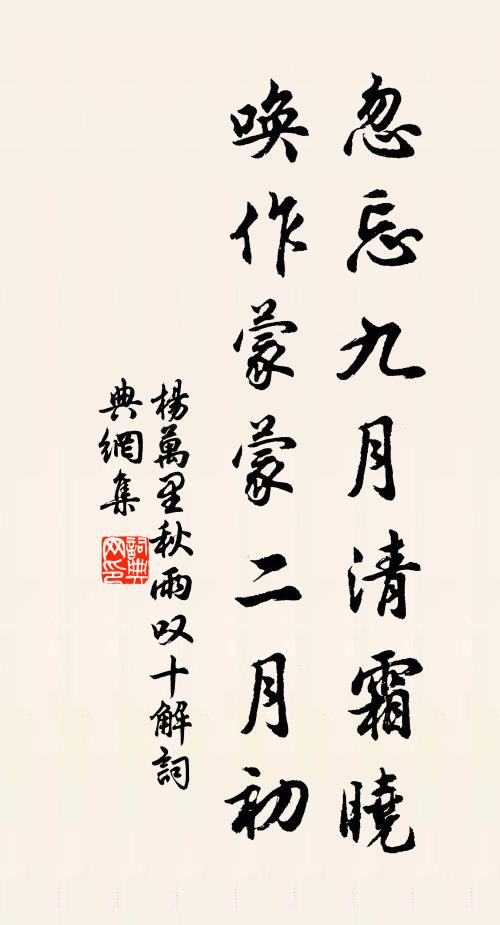 忽忘九月清霜曉
喚作蒙蒙二月初
楊萬里秋雨叹十解詞
典網集
詞典
网印